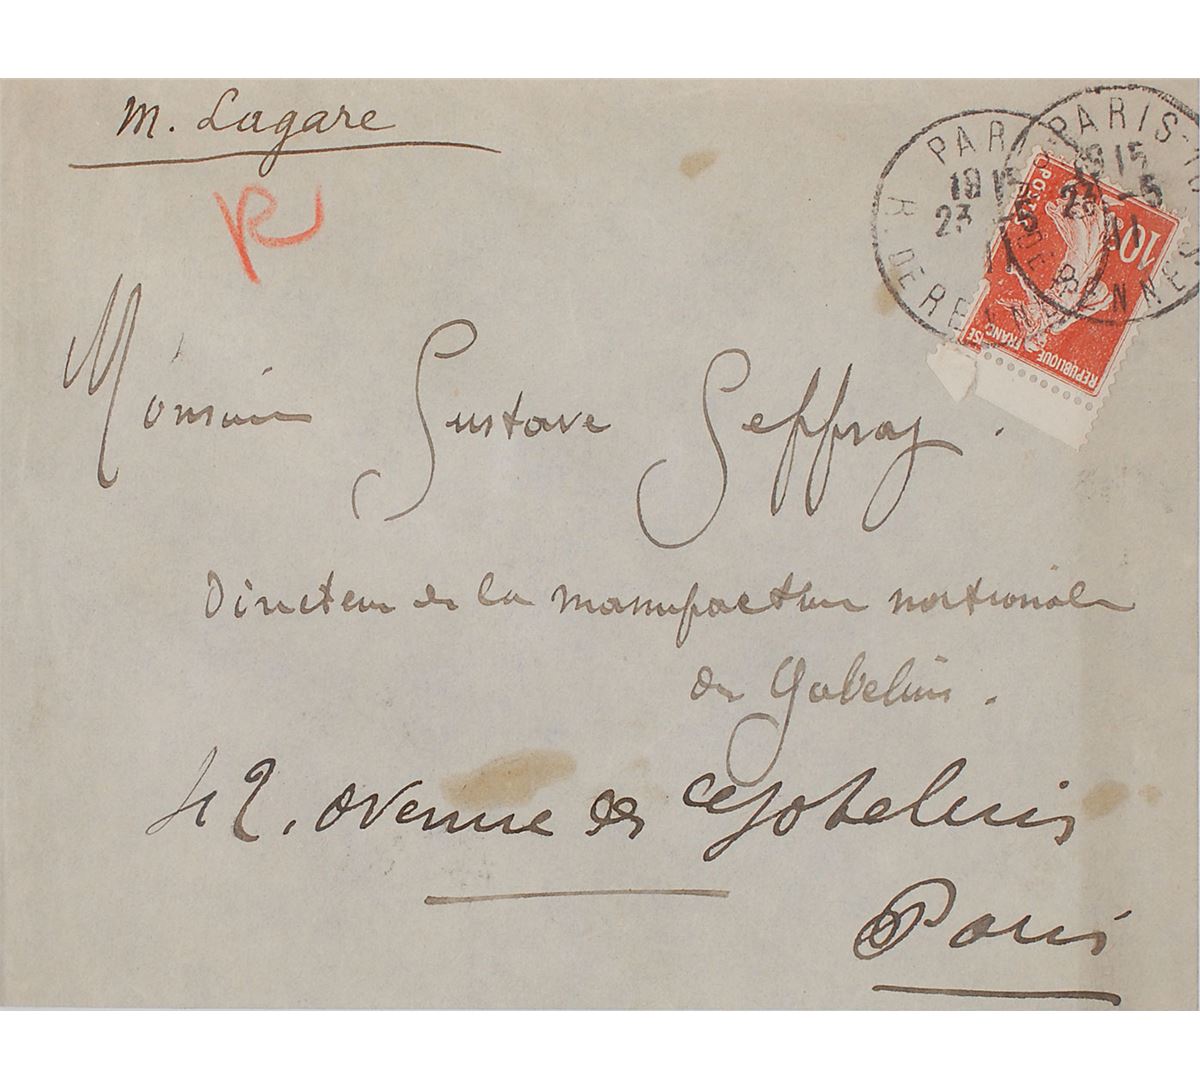 M. Lagare
R
PARIS
1915
23 -5
11
R. DE RENNES
PARIS
1915
23 -5
11
R. DE RENNES
POSTES
10c
REPUBLIQUE FRANCAISE
Monsieur Gustave Geffroy.
Directeur de la manufacture nationale
des Gobelins.
42, avenue des Gobelins
Paris